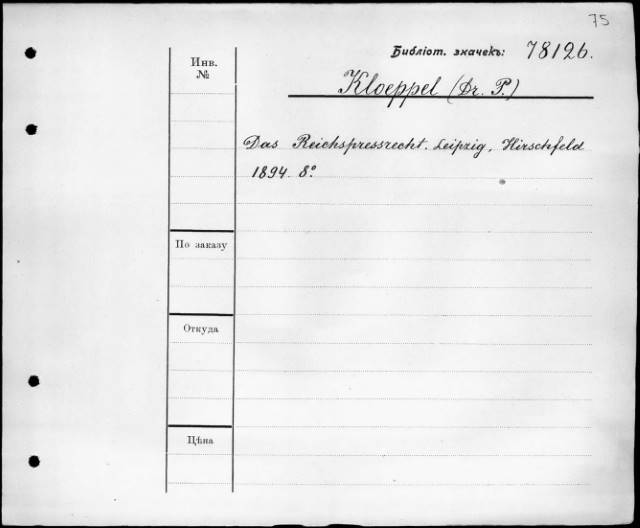 75
Библіот. значекъ: 78126.
Инв.
№
Kloeppel (Dr. P.)
Das Reichspressrecht. Leipzig, Hirschfeld
1894. 8°
По заказу
Откуда
Цѣна